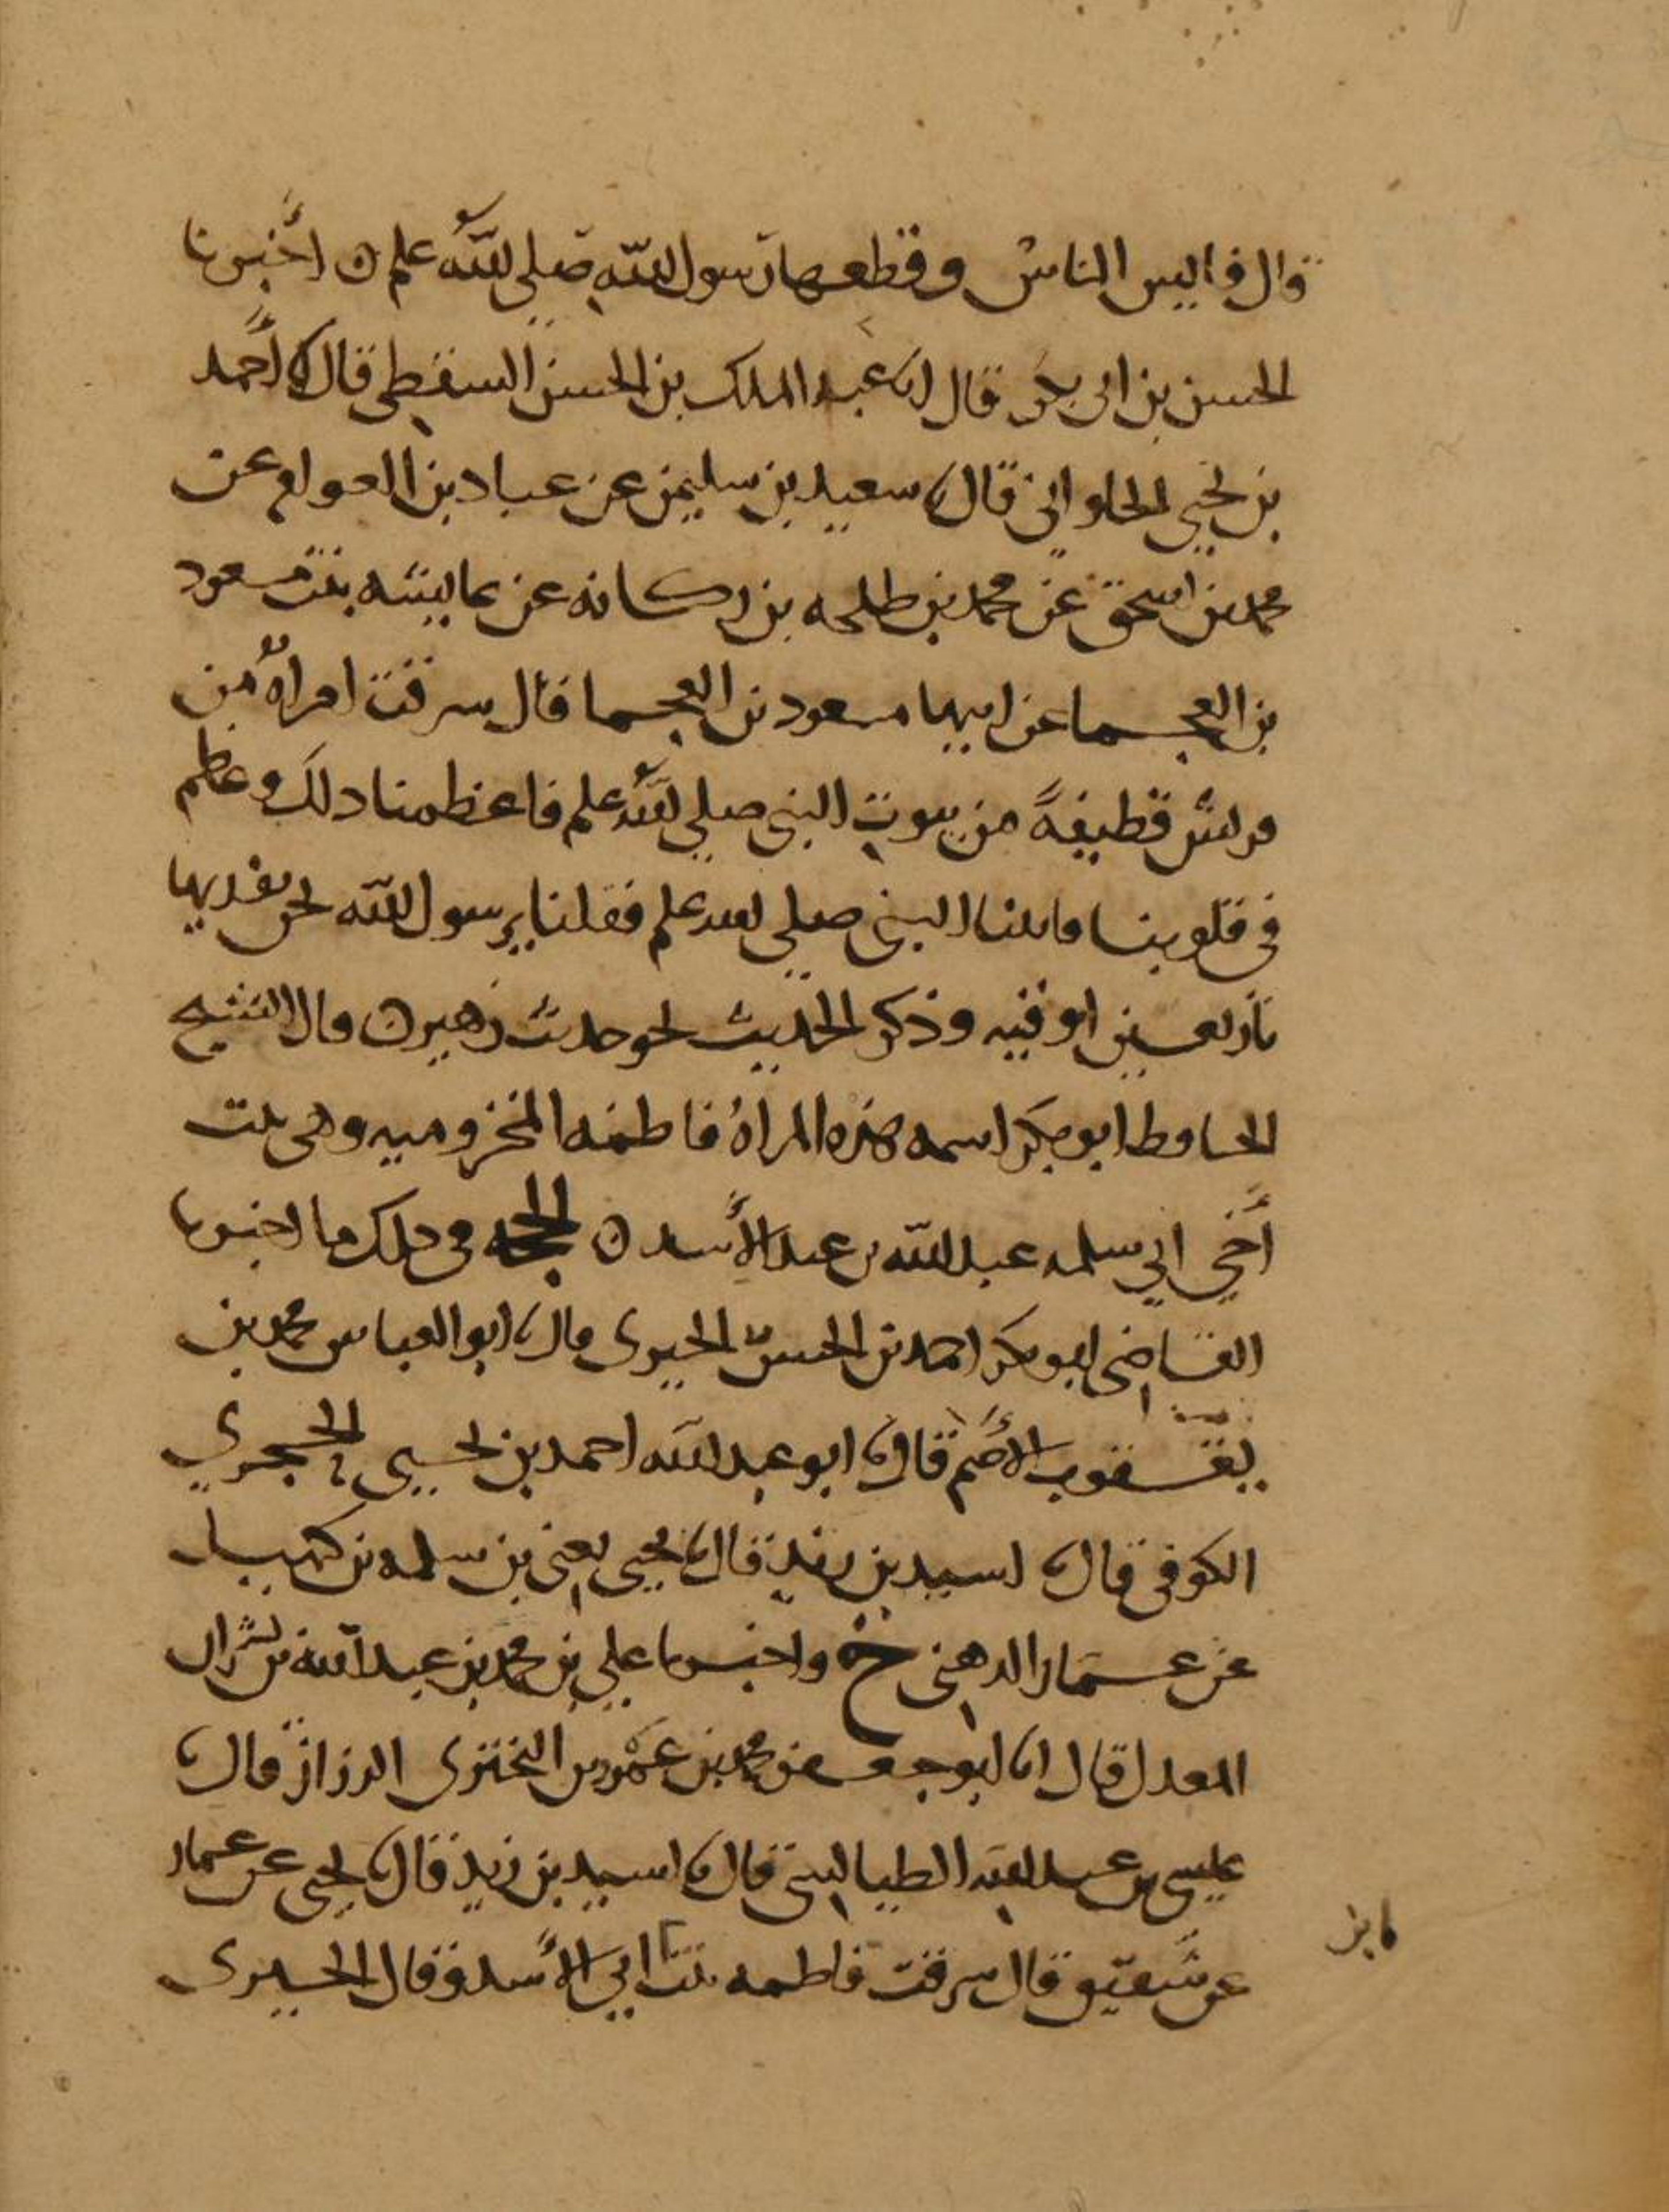 قال فايس الناس وقطعها رسول الله صلى الله علم ه أخبرنا
الحسن بن ابى بكر قال انا عبد الملك بن الحسن السقطي قال نا أحمد
بن يحيى الحلواني قال نا سعيد بن سليمن عن عباد بن العوام عن
محمد بن اسحق عن محمد بن طلحه بن ركانه عن عايشه بنت مسعود
بن العجما عن ابيها مسعود بن العجما قال سرقت امراة من
قريش قطيفة من بيوت النبي صلى الله علم فاعظمنا ذلك وعظم
في قلوبنا فاتينا النبي صلى الله علم فقلنا يرسول الله نحن نفديها
باربعين اوقيه وذكر الحديث نحو حديث زهير ه قال الشيخ
الحافظ ابو بكر اسم هذه المراة فاطمه المخزوميه وهى بنت
أخي ابي سلمه عبد الله بن عبد الأسد ه الحجه في ذلك ما اخبرنا
القاضي ابو بكر احمد بن الحسن الحيرى قال نا ابو العباس محمد بن
يعقوب الأصم قال نا ابو عبد الله احمد بن يحيى الحجري
الكوفي قال نا اسيد بن زيد قال نا يحيى يعني بن سلمه بن كهيل
عن عمار الدهني ح واخبرنا علي بن محمد بن عبد الله بن بشران
المعدل قال انا ابو جعفر محمد بن عمرو بن البختري الرزاز قال نا
عيسى بن عبد الله الطيالسي قال نا اسيد بن زيد قال نا يحيى عن عمار
عن شقيق قال سرقت فاطمه بنت ابي الأسد وقال الحيرى